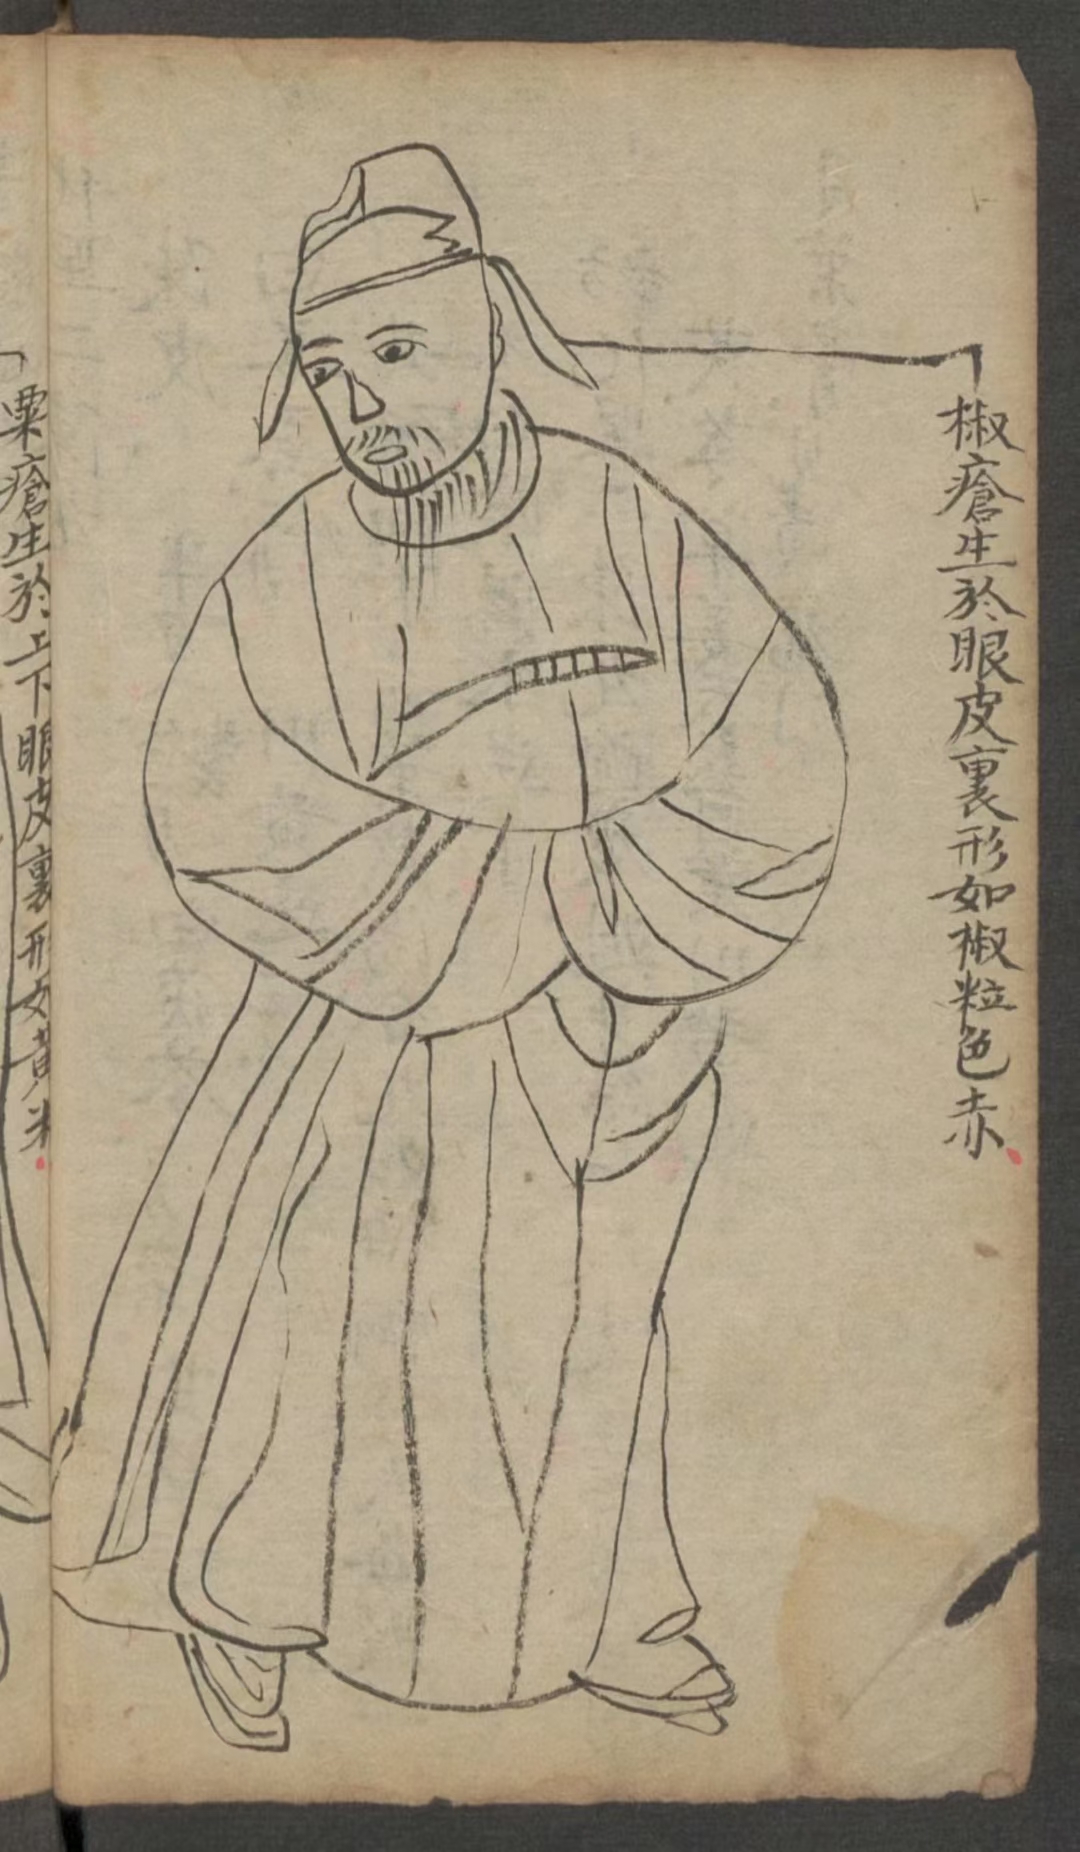 椒瘡生於眼皮裏形如椒粒色赤
粟瘡生於上下眼皮裏形如黄米